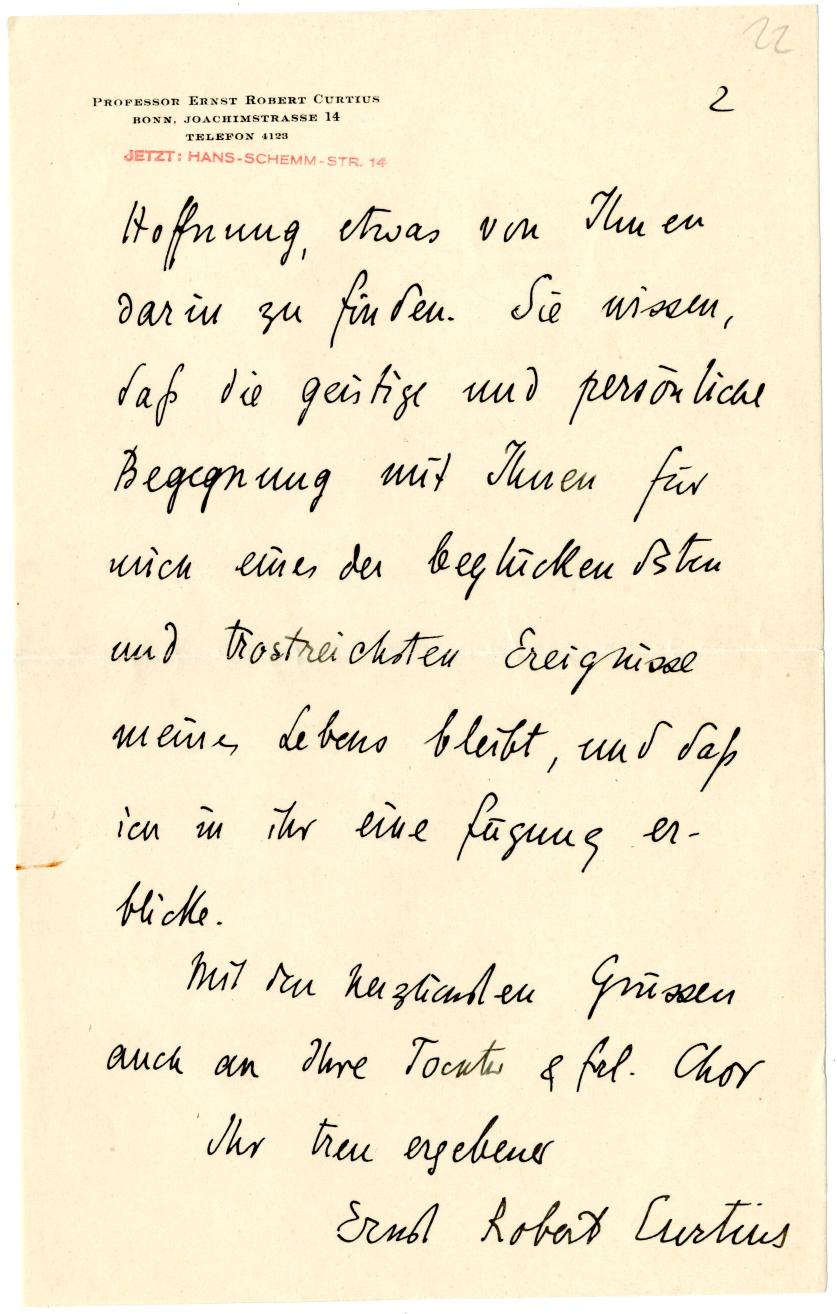 22
PROFESSOR ERNST ROBERT CURTIUS
BONN, JOACHIMSTRASSE 14
TELEFON 4123
JETZT: HANS-SCHEMM-STR. 14
2
Hoffnung, etwas von Ihnen
darin zu finden. Sie wissen,
daß die geistige und persönliche
Begegnung mit Ihnen für
mich eines der beglückendsten
und trostreichsten Ereignisse
meines Lebens bleibt, und daß
ich in ihr eine Fügung er-
blicke.
Mit den herzlichsten Grüssen
auch an Ihre Tochter & Frl. Chor
Ihr treu ergebener
Ernst Robert Curtius